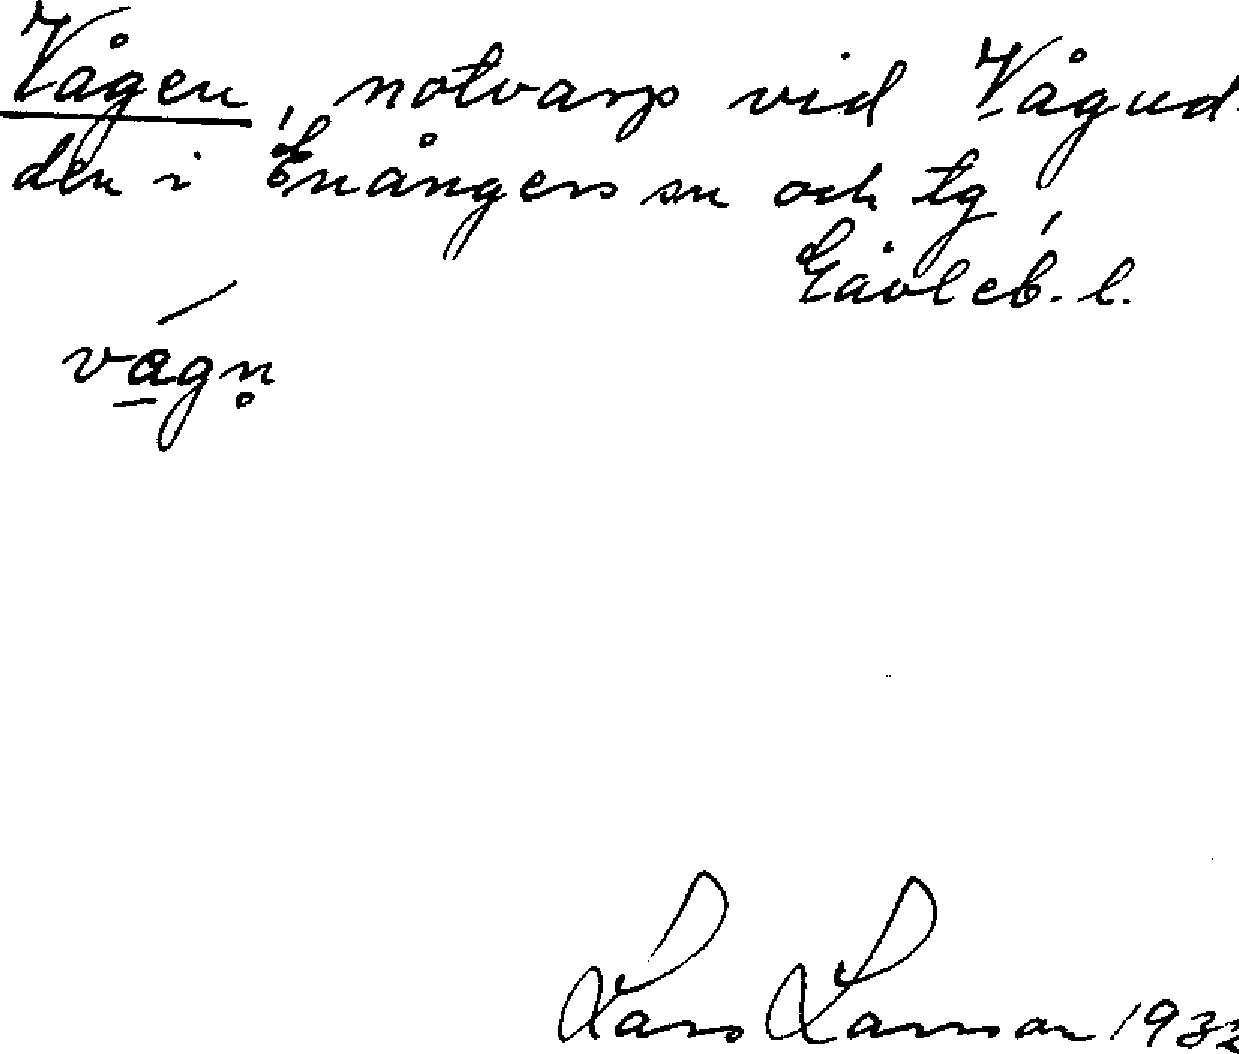 Vågen, notvarp vid Vågud-
den i Enångers sn och tg,
Gävleb. l.
vágn̥
Lars Larsson 1932